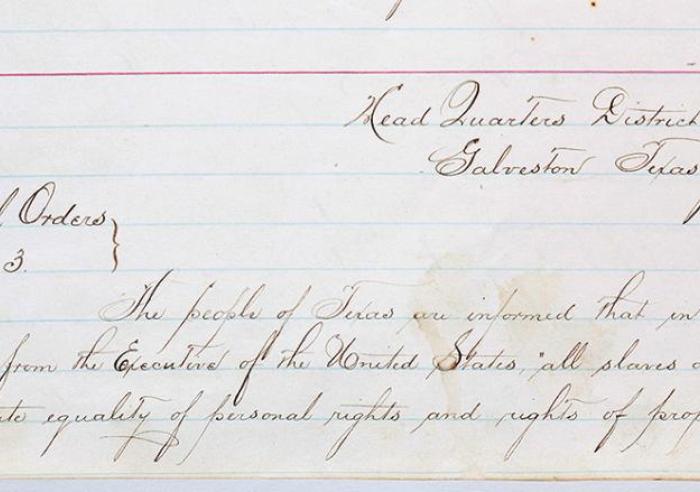 Head Quarters District
Galveston Texas
l Orders }
3.
The people of Texas are informed that in
from the Executive of the United States, "all slaves a
ute equality of personal rights and rights of prop